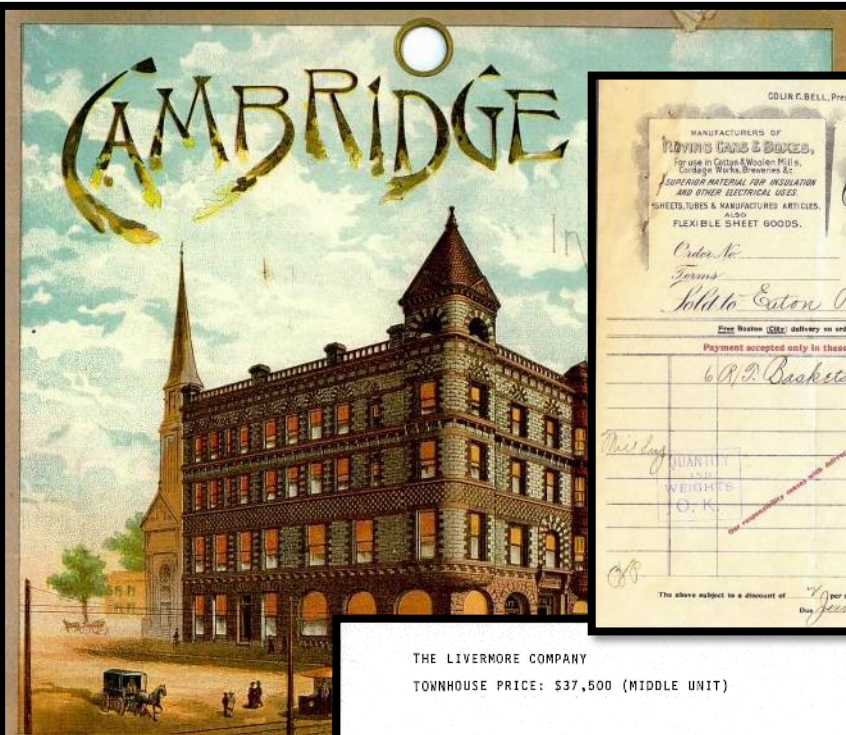 CAMBRIDGE
COLIN C. BELL, Pres
MANUFACTURERS OF
ROVING CANS & BOXES,
For use in Cotton & Woolen Mills,
Cordage Works, Breweries &c.
SUPERIOR MATERIAL FOR INSULATION
AND OTHER ELECTRICAL USES.
SHEETS, TUBES & MANUFACTURED ARTICLES,
ALSO
FLEXIBLE SHEET GOODS.
Order No
Terms
Sold to Eaton
Free Boston (City) delivery on ord
Payment accepted only in these
6 R/T. Baskets
QUANTITY
AND
WEIGHTS
O. K.
Our responsibility ceases with deliver
The above subject to a discount of per
Due
THE LIVERMORE COMPANY
TOWNHOUSE PRICE: $37,500 (MIDDLE UNIT)